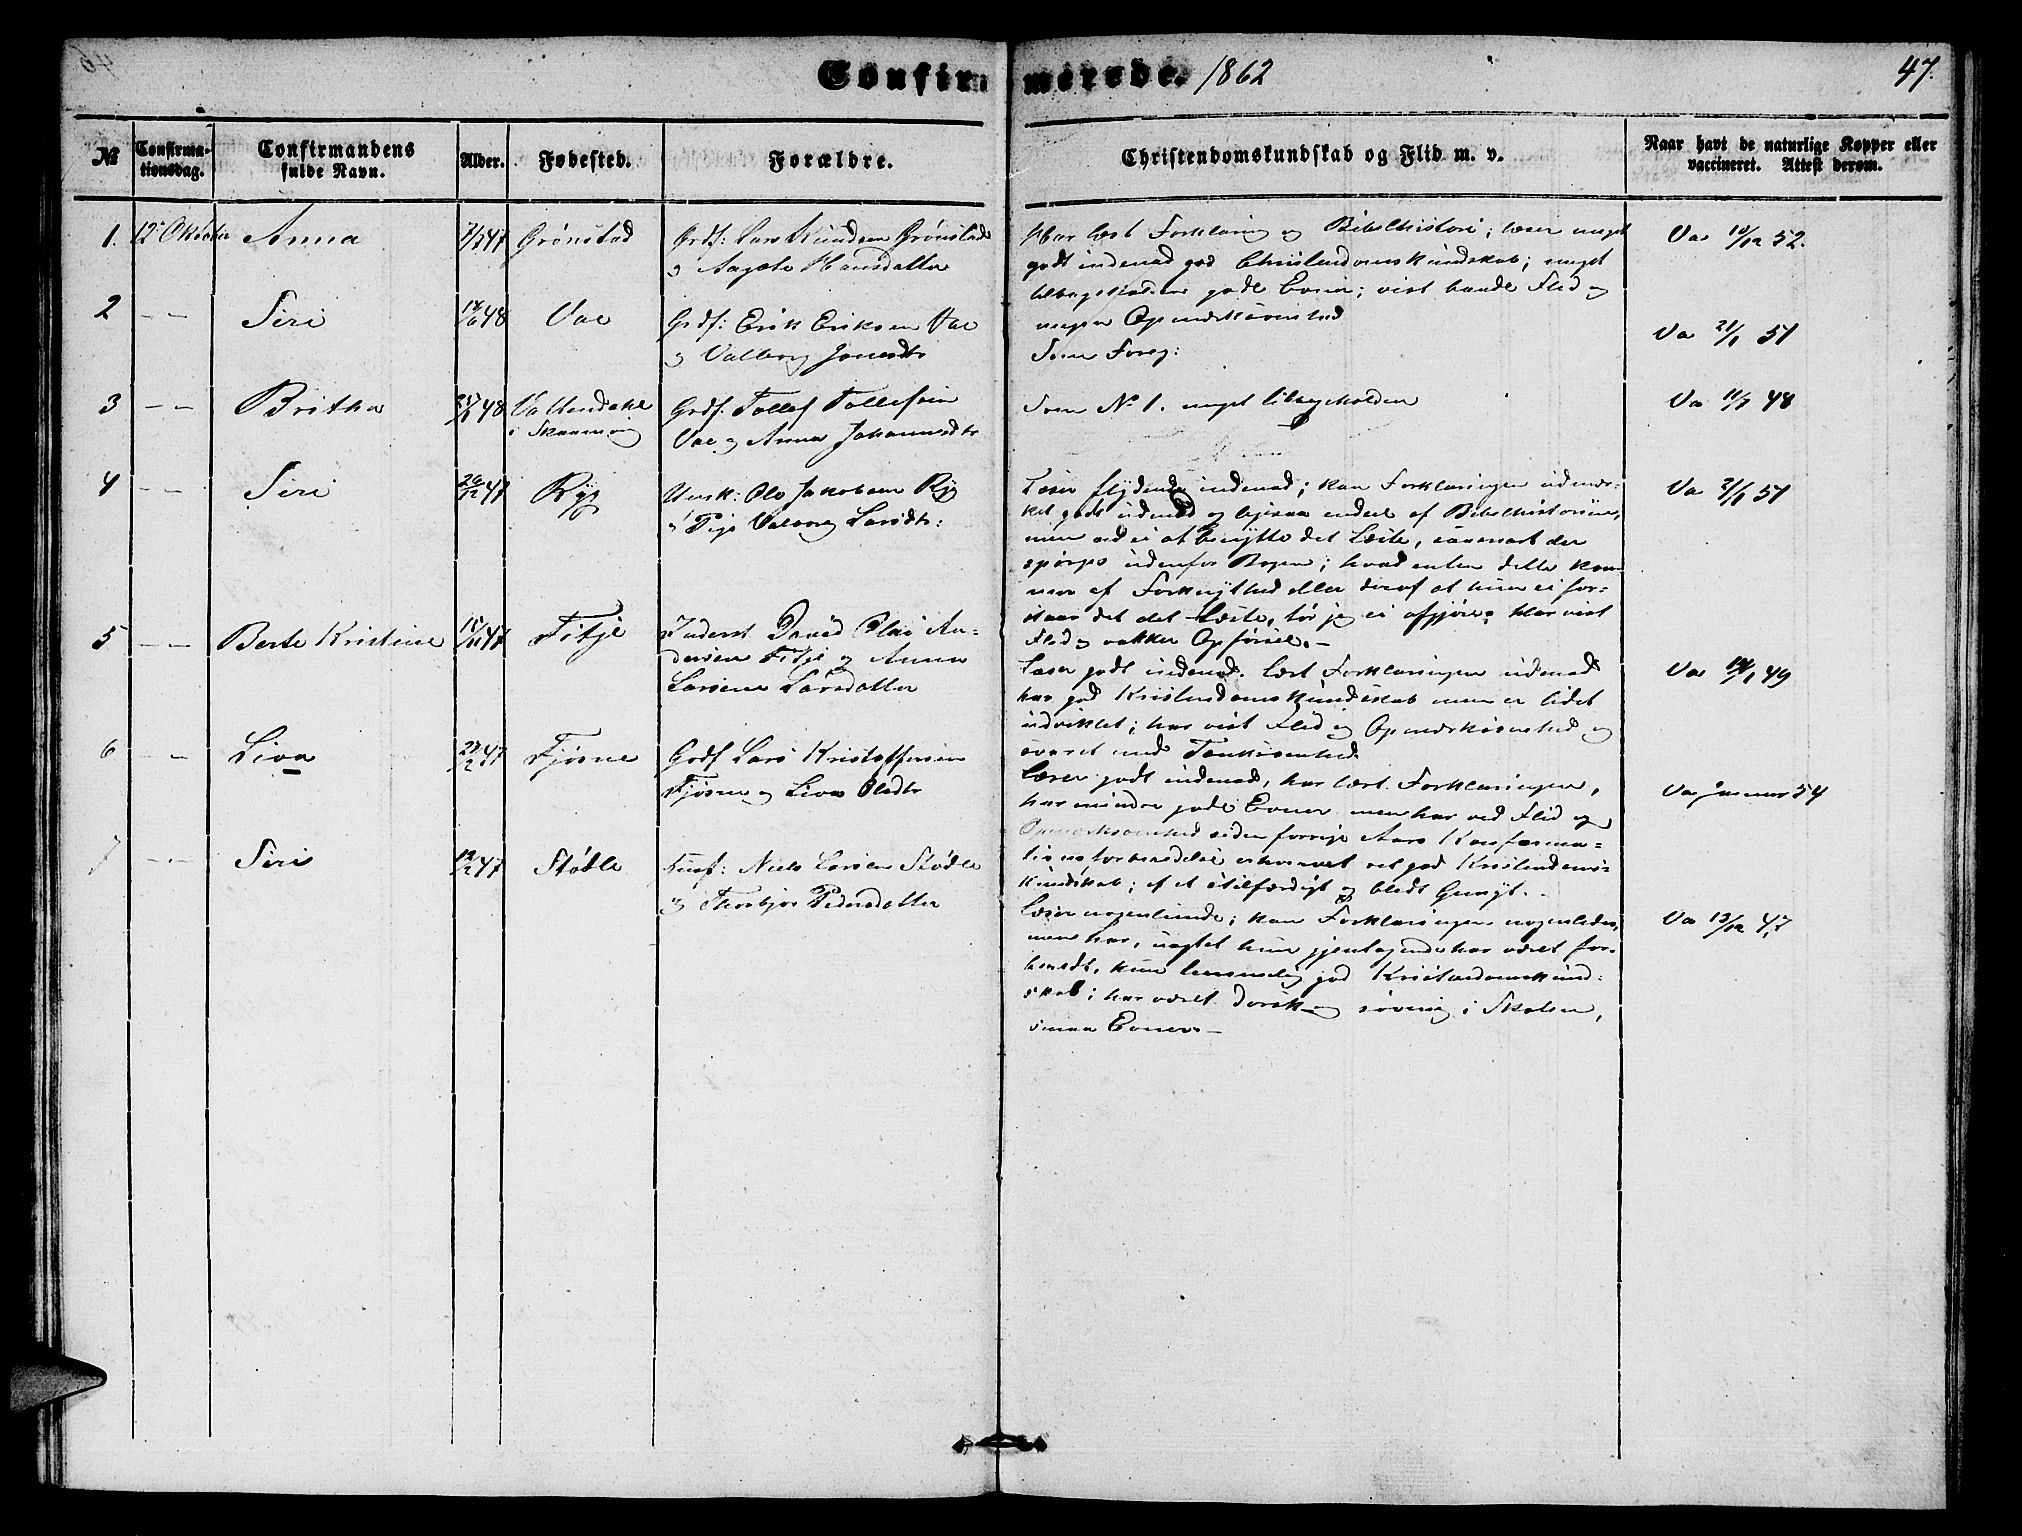 Confirmerede. 1862
47.
No Confirmationsdag. Confirmandens fulde Navn. Alder. Fødested. Forældre. Christendomskundskab og Flid m. v. Naar havt de naturlige Kopper eller vaccineret. Attest derom.
1. 12 Oktober Anna 47 Grønstad Grdf: Lars Knudsen Grønstad
& Aagote Hansdatter
Har læst Forklaring og Bibelhistori; læser meget
godt indenad god Christendomskundskab; meget
tilbageholden gode Evner; vist baade Flid og
megen Opmærksomhed
Va 10/12 52.
2 – – Siri 48 Vae Grdf: Erik Eriksen Vae
& Valborg Jonesdtr
Som Foreg:
Va 21/1 51
3 – – Britha 48 Vattendahl
i Skaanevig
Grdf: Tollef Tollefsen
Vae og Anna Johannesdtr
Som No 1. meget tilbageholden
Va 11/7 48
4 – – Siri 20/12 47 Ryg Unsk: Ole Jakobsen Ryg
& Pige Valborg Larsdtr:
Læser flydende indenad; kan Forklaringen udmær-
ket godt udenad og ligesaa endeel af Bibelhistorien,
men ved ei at benytte det Læste, saasnart der
spørges udenfor Bogen; hvad enten dette kom-
mer af Forknythed eller deraf at hun ei for-
staar det det Læste, tør jeg ei afgjøre; Har vist
Flid og vakker Opførsel. –
Va 21/1 51
5 – – Berte Kristine 47 Fitje Inderst David Olai An-
dersen Fitje og Anna
Larsine Larsdatter
Læser godt indenad. lært Forklaringen udenad
har god Kristendomskundskab men er lidet
udviklet; har vist Flid og Opmærksomhed og
svaret med Tænksomhed
Va 49
6 – Liva 47 Fjøsne Grdf Lars Kristoffersen
Fjøsne og Liva Olsdtr
Læser godt indenad, har lært Forklaringen,
har mindre gode Evner men har ved Flid og
Opmærksomhed siden forrige Aars Konfirma-
tionsforberedelse erhvervet ret god Kristendoms-
kundskab; af et stilfærdigt og blødt Gemyt. –
Va Januar 54
7 – – Siri 47 Støble Huusf: Niels Larsen Støble
& Thorbjør Pedersdatter
Læser nogenlunde; kan Forklaringen nogenledes,
men har, uagtet hun gjentagende har været for-
beredt, kun temmelig god Kristendomskund-
skab; har været dorsk og søvnig i Skolen,
smaa Evner. –
Va 13/12 47